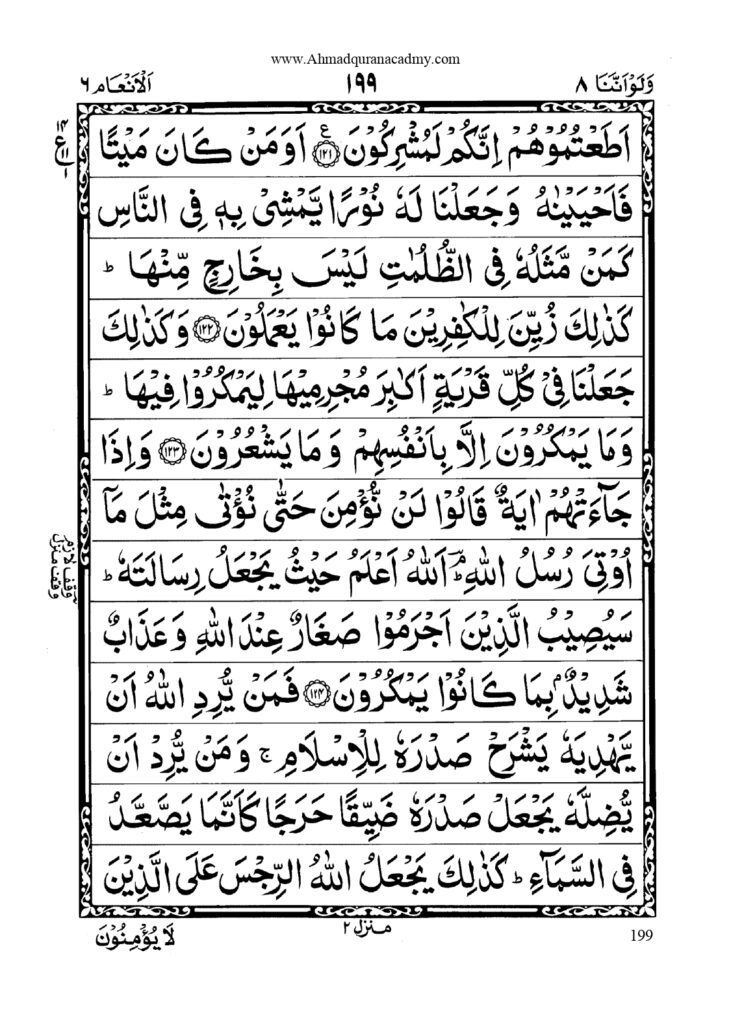 www.Ahmadquranacadmy.com
وَلَوْاَنَّنَا ٨ ١٩٩ اَلْاَنْعَام ٦
اَطَعْتُمُوْهُمْ اِنَّكُمْ لَمُشْرِكُوْنَ ﴿١٢١﴾ ع اَوَمَنْ كَانَ مَيْتًا
١٤ ع ١١ ١
فَاَحْيَيْنٰهُ وَجَعَلْنَا لَهٗ نُوْرًا يَّمْشِىْ بِهٖ فِى النَّاسِ
كَمَنْ مَّثَلُهٗ فِى الظُّلُمٰتِ لَيْسَ بِخَارِجٍ مِّنْهَا ؕ
كَذٰلِكَ زُيِّنَ لِلْكٰفِرِيْنَ مَا كَانُوْا يَعْمَلُوْنَ ﴿١٢٢﴾ وَكَذٰلِكَ
جَعَلْنَا فِىْ كُلِّ قَرْيَةٍ اَكٰبِرَ مُجْرِمِيْهَا لِيَمْكُرُوْا فِيْهَا ؕ
وَمَا يَمْكُرُوْنَ اِلَّا بِاَنْفُسِهِمْ وَمَا يَشْعُرُوْنَ ﴿١٢٣﴾ وَاِذَا
جَآءَتْهُمْ اٰيَةٌ قَالُوْا لَنْ نُّؤْمِنَ حَتّٰى نُؤْتٰى مِثْلَ مَاۤ
اُوْتِىَ رُسُلُ اللّٰهِ ؕۘ اَللّٰهُ اَعْلَمُ حَيْثُ يَجْعَلُ رِسَالَتَهٗ ؕ
وقف لازم
وقف منزل
سَيُصِيْبُ الَّذِيْنَ اَجْرَمُوْا صَغَارٌ عِنْدَ اللّٰهِ وَعَذَابٌ
شَدِيْدٌۢ بِمَا كَانُوْا يَمْكُرُوْنَ ﴿١٢٤﴾ فَمَنْ يُّرِدِ اللّٰهُ اَنْ
يَّهْدِيَهٗ يَشْرَحْ صَدْرَهٗ لِلْاِسْلَامِ ۚ وَمَنْ يُّرِدْ اَنْ
يُّضِلَّهٗ يَجْعَلْ صَدْرَهٗ ضَيِّقًا حَرَجًا كَاَنَّمَا يَصَّعَّدُ
فِى السَّمَآءِ ؕ كَذٰلِكَ يَجْعَلُ اللّٰهُ الرِّجْسَ عَلَى الَّذِيْنَ
لَا يُؤْمِنُوْنَ
منزل ٢
199